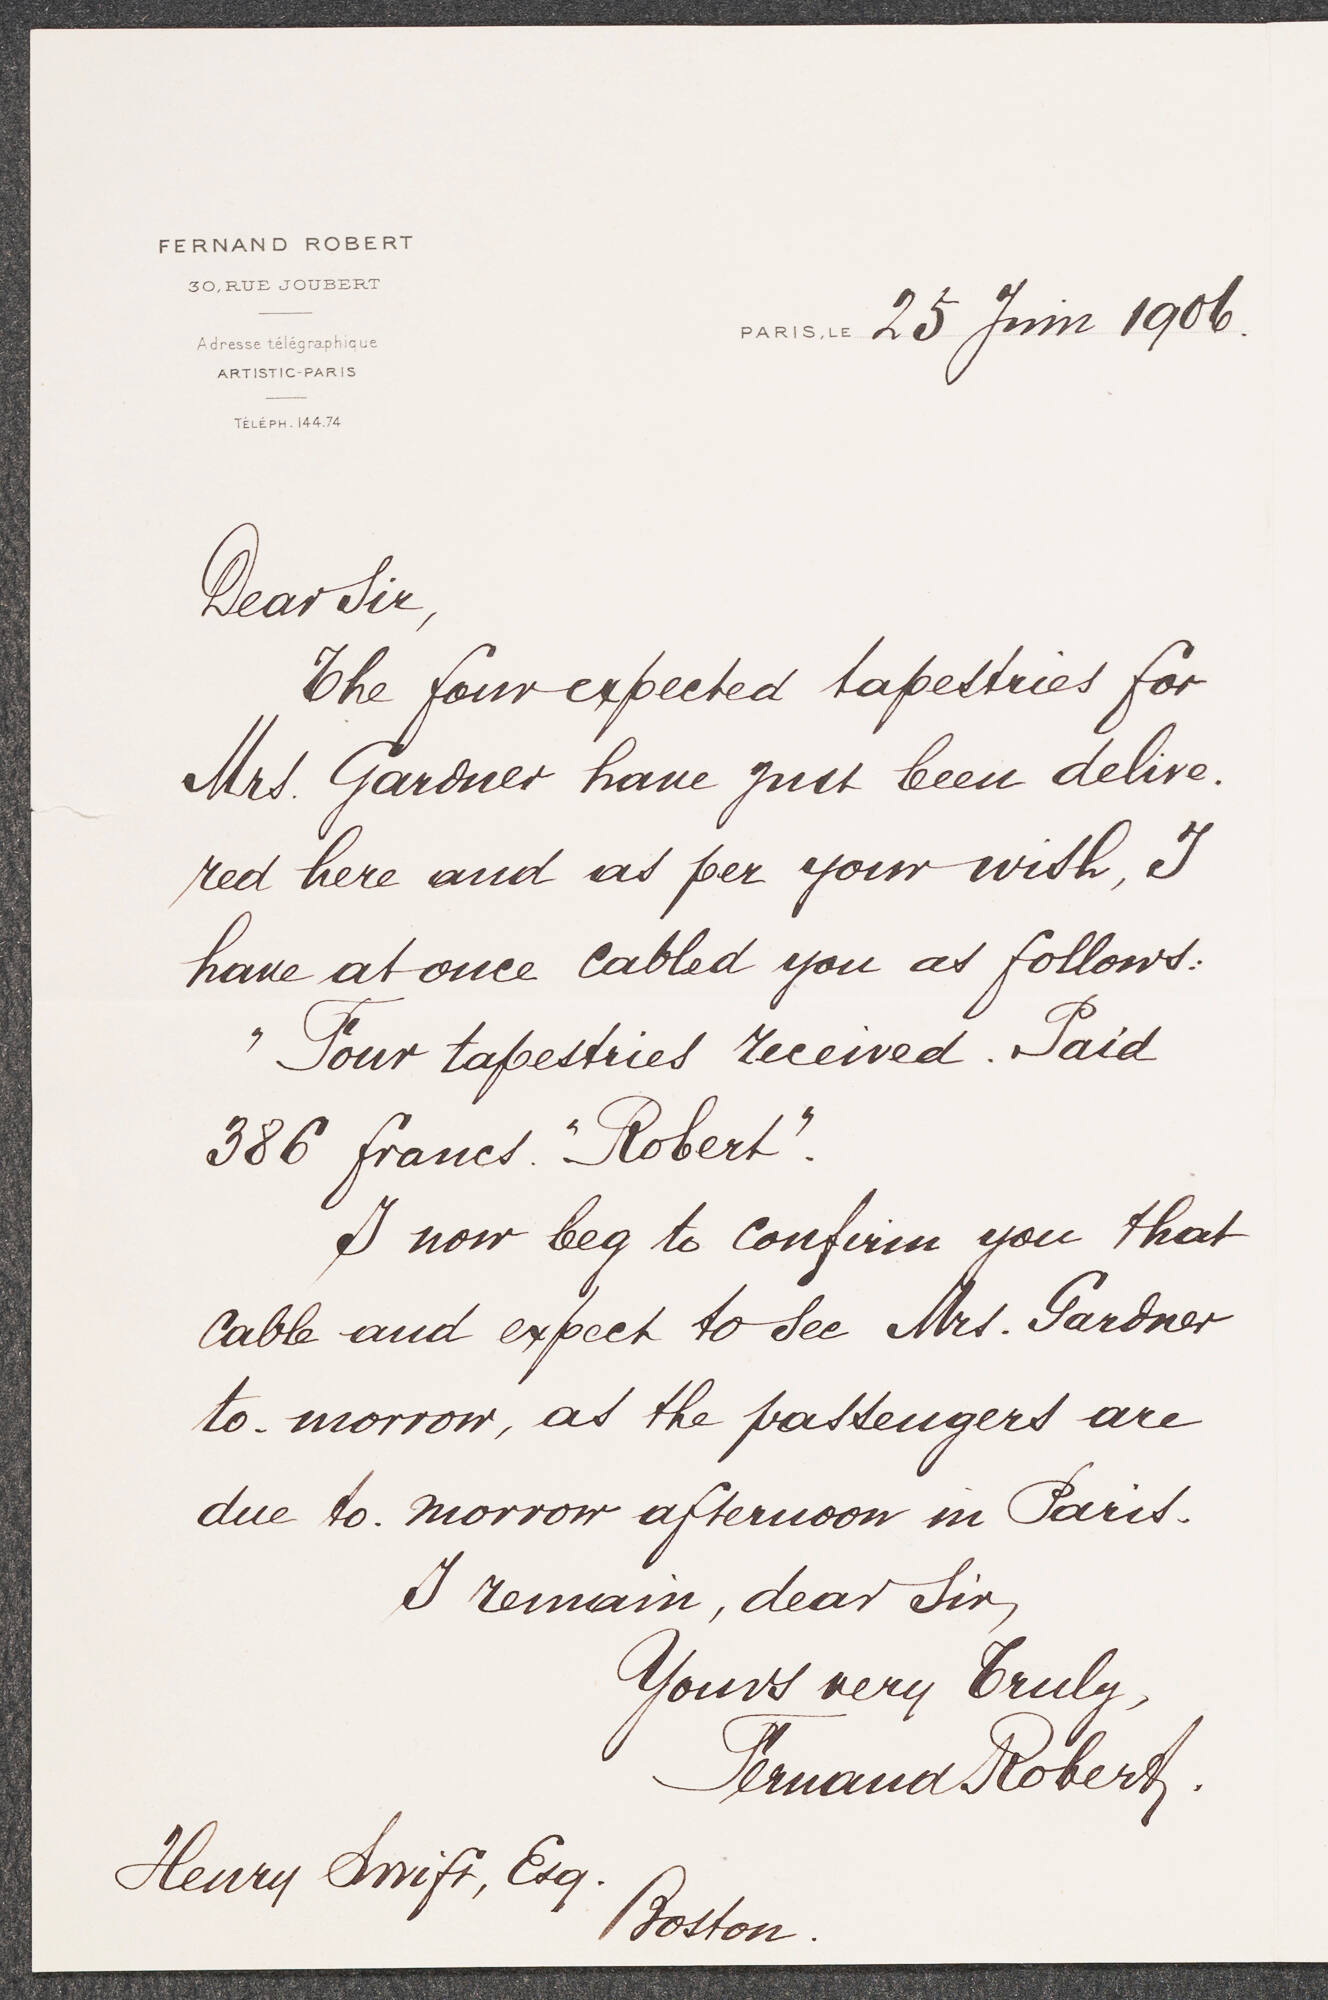 FERNAND ROBERT
30, RUE JOUBERT
Adresse télégraphique
ARTISTIC-PARIS
TÉLÉPH. 144.74
PARIS, LE 25 Juin 1906.
Dear Sir,
The four expected tapestries for
Mrs. Gardner have just been delive-
red here and as per your wish, I
have at once cabled you as follows:
" Four tapestries received. Paid
386 francs. "Robert".
I now beg to confirm you that
cable and expect to see Mrs. Gardner
to-morrow, as the passengers are
due to-morrow afternoon in Paris.
I remain, dear Sir,
Yours very Truly,
Fernand Robert.
Henry Swift, Esq.
Boston.